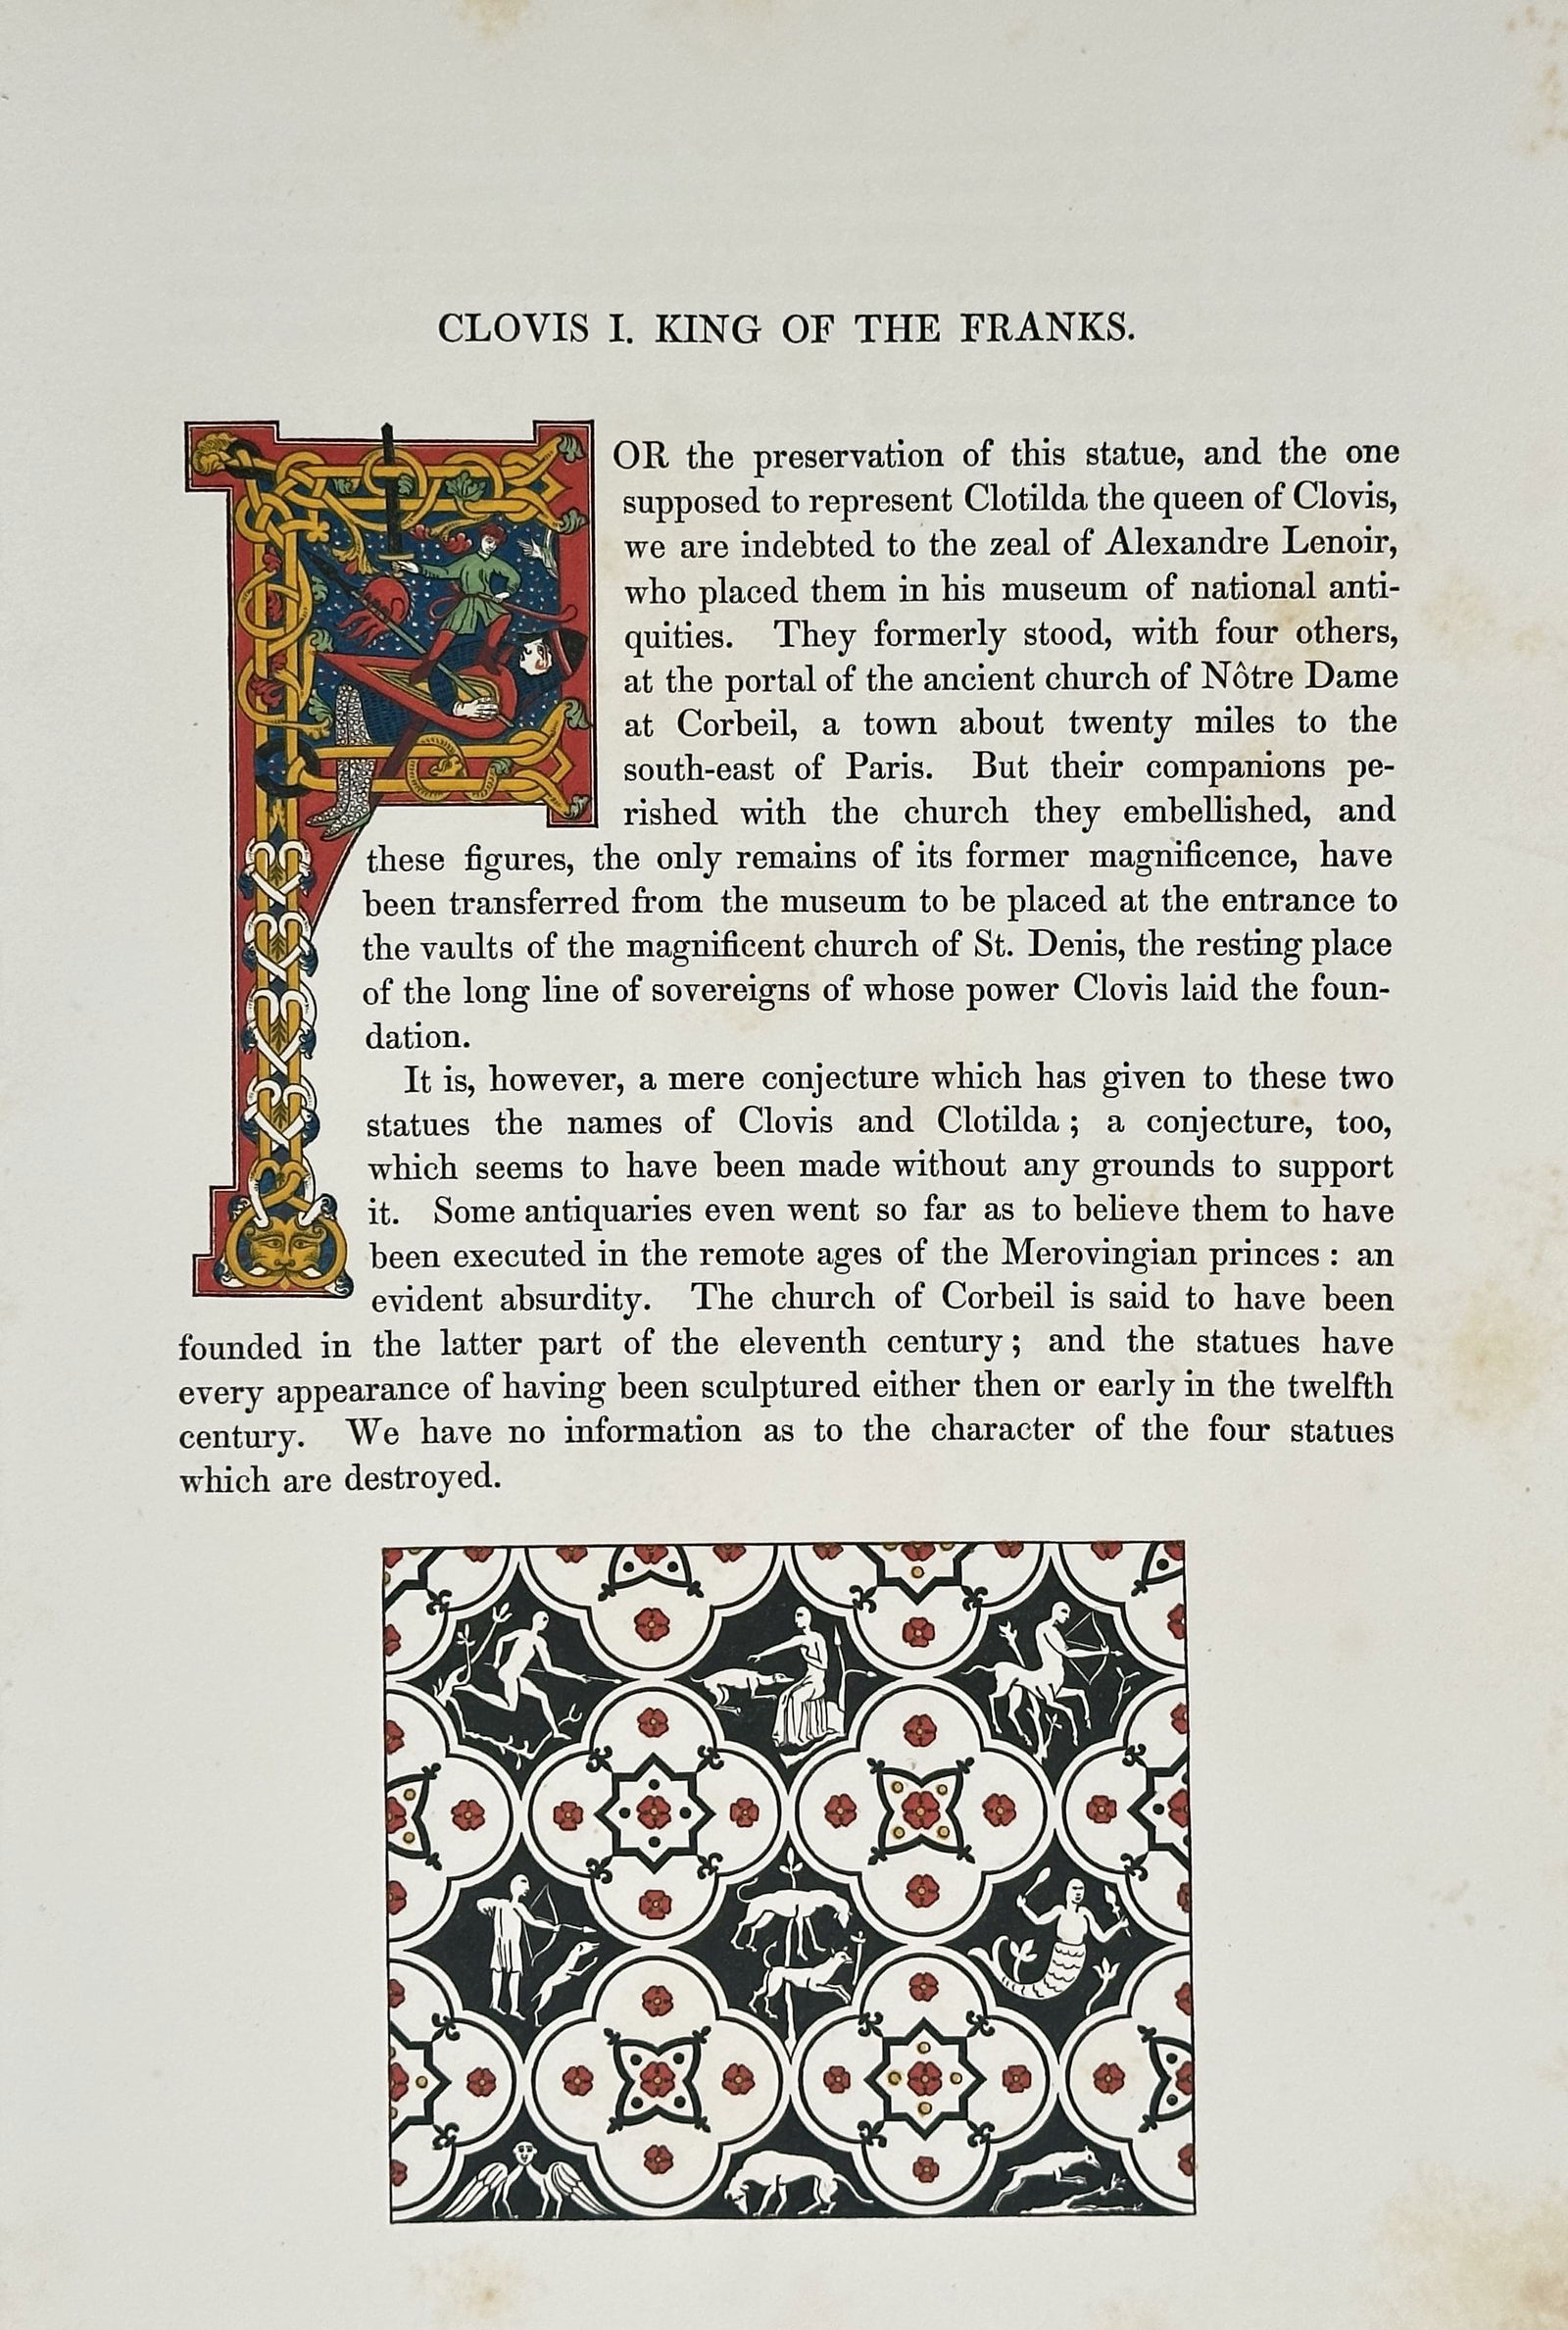 CLOVIS I. KING OF THE FRANKS.
FOR the preservation of this statue, and the one
supposed to represent Clotilda the queen of Clovis,
we are indebted to the zeal of Alexandre Lenoir,
who placed them in his museum of national anti-
quities. They formerly stood, with four others,
at the portal of the ancient church of Nôtre Dame
at Corbeil, a town about twenty miles to the
south-east of Paris. But their companions pe-
rished with the church they embellished, and
these figures, the only remains of its former magnificence, have
been transferred from the museum to be placed at the entrance to
the vaults of the magnificent church of St. Denis, the resting place
of the long line of sovereigns of whose power Clovis laid the foun-
dation.
It is, however, a mere conjecture which has given to these two
statues the names of Clovis and Clotilda; a conjecture, too,
which seems to have been made without any grounds to support
it. Some antiquaries even went so far as to believe them to have
been executed in the remote ages of the Merovingian princes: an
evident absurdity. The church of Corbeil is said to have been
founded in the latter part of the eleventh century; and the statues have
every appearance of having been sculptured either then or early in the twelfth
century. We have no information as to the character of the four statues
which are destroyed.